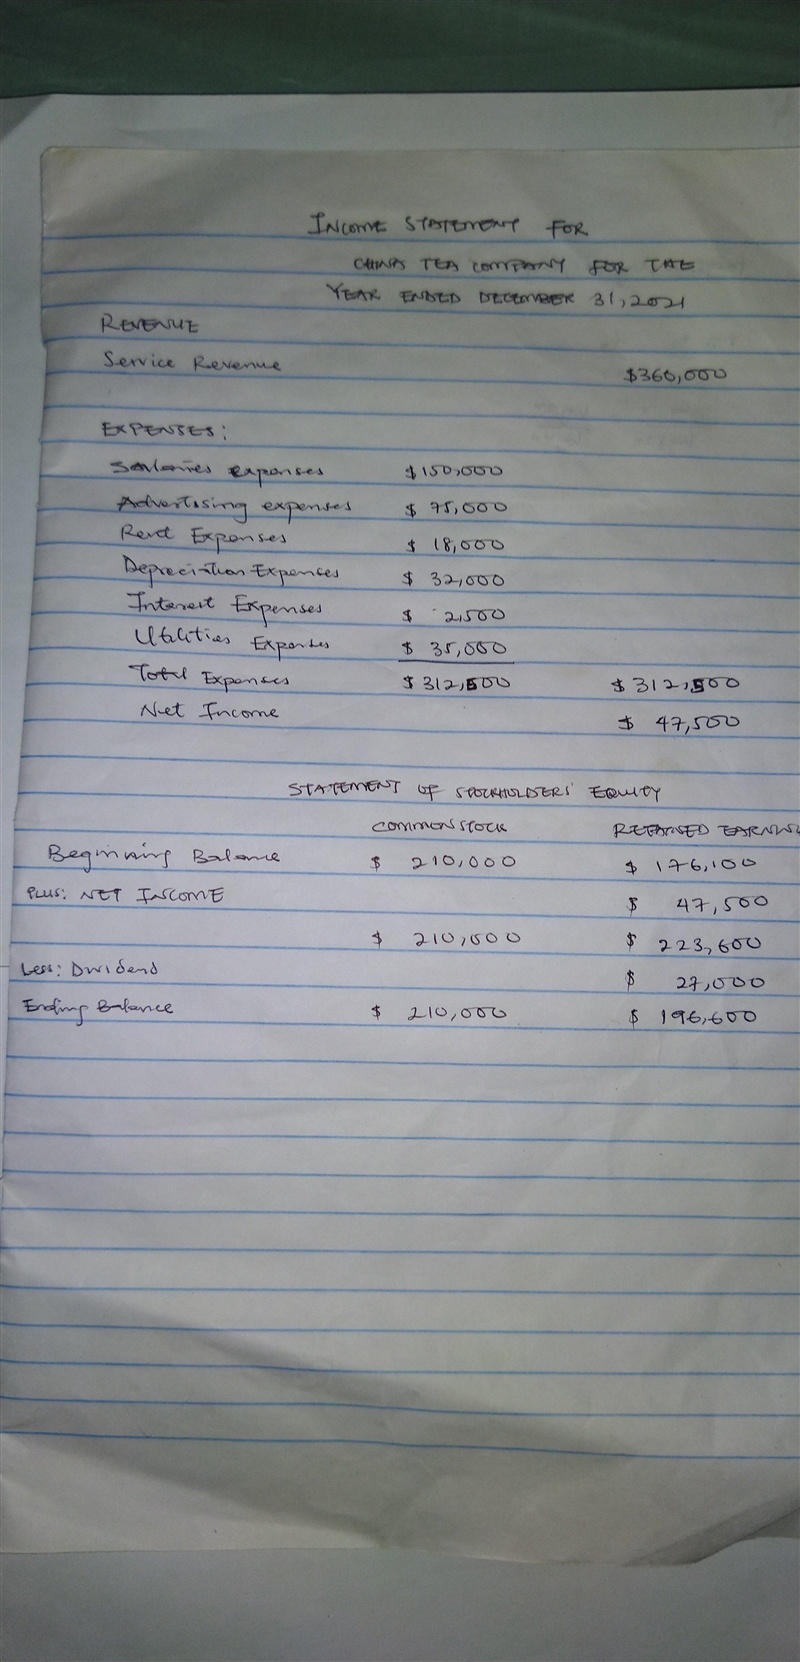 INCOME STATEMENT FOR
CHINA TEA COMPANY FOR THE
YEAR ENDED DECEMBER 31, 2021
REVENUE
Service Revenue $360,000
EXPENSES:
Salaries expenses $150,000
Advertising expenses $ 75,000
Rent Expenses $ 18,000
Depreciation Expenses $ 32,000
Interest Expenses $ 2,500
Utilities Expenses $ 35,000
Total Expenses $312,500 $312,500
Net Income $ 47,500
STATEMENT OF STOCKHOLDERS' EQUITY
COMMON STOCK RETAINED EARNING
Beginning Balance $ 210,000 $ 176,100
PLUS: NET INCOME $ 47,500
$ 210,000 $ 223,600
Less: Dividend $ 27,000
Ending Balance $ 210,000 $ 196,600